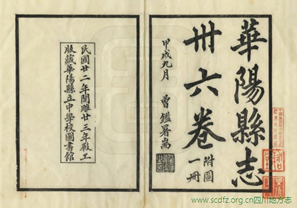 華陽縣志
卅六卷
附圖一冊
甲戌九月
曾鑑署耑
民國廿二年開雕廿三年啟工
版藏華陽縣立中學校圖書館
www.scdfz.org.cn四川地方志